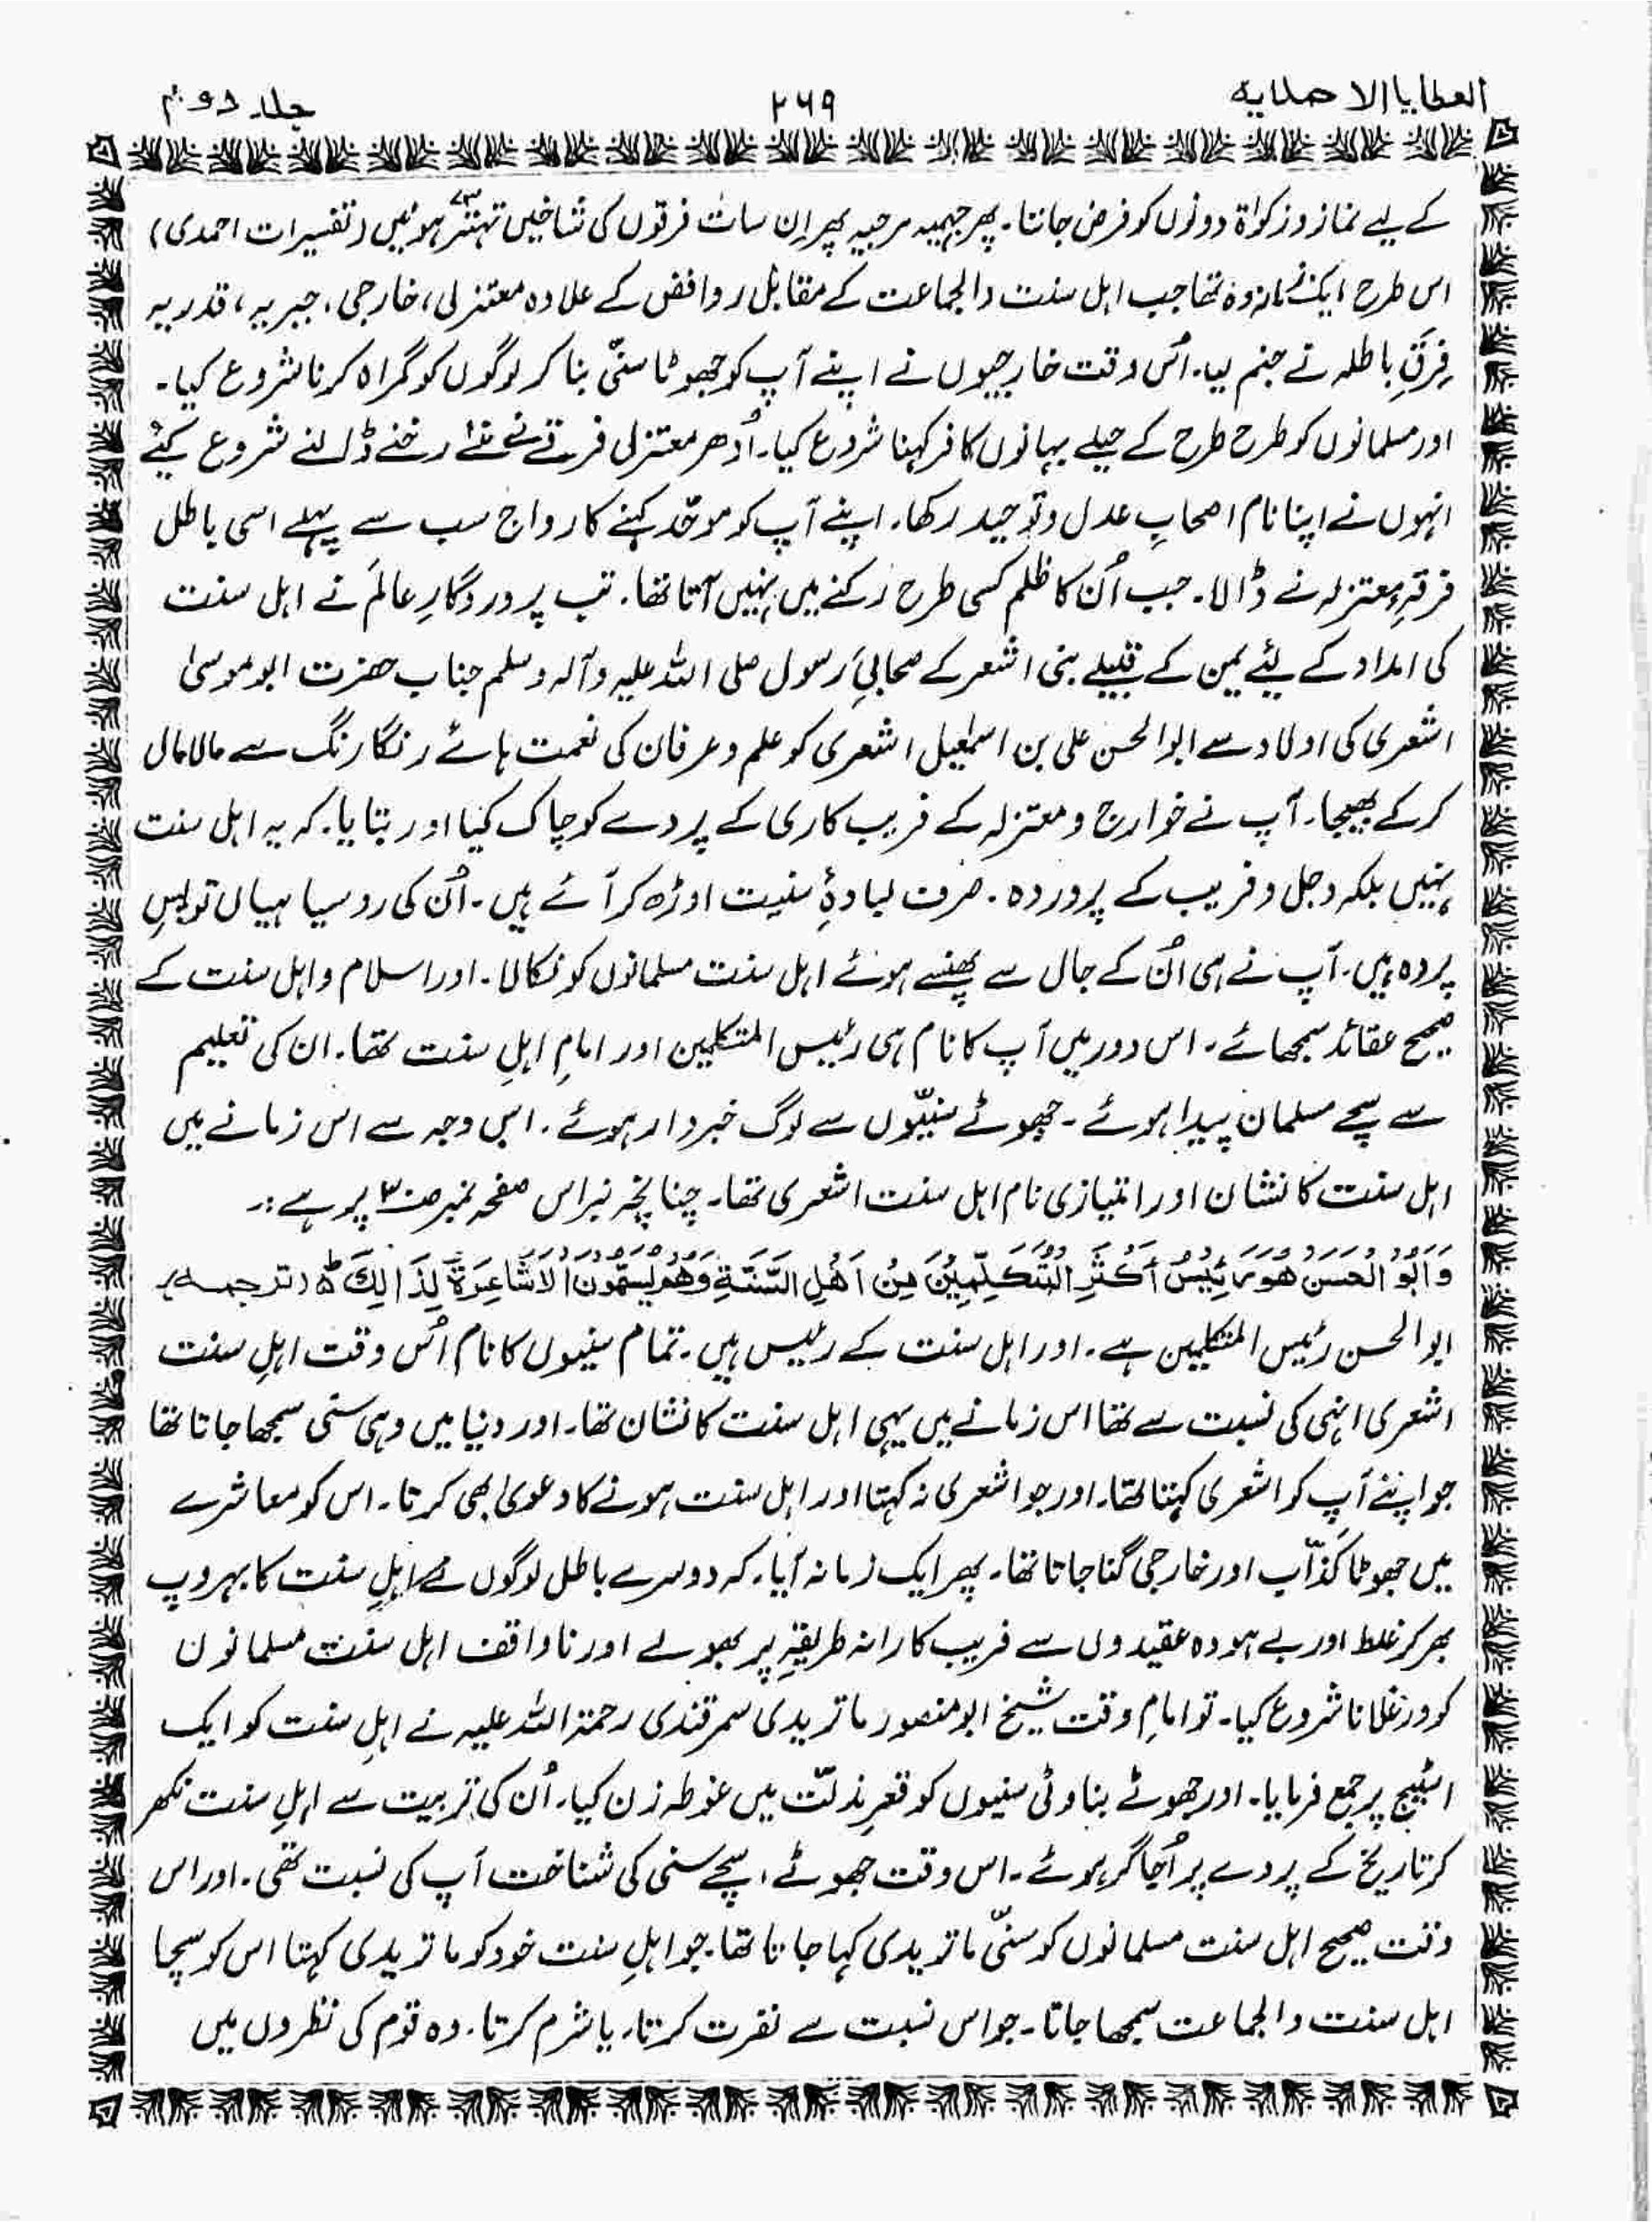 العطایا الاحمدیہ ۲۶۹ جلد دوم
کے لیے نماز و زکوٰۃ دونوں کو فرض جاننا۔ پھر جہمیہ مرجیہ پھر اِن سات فرقوں کی شاخیں تہتّر ۷۳ ہوئیں (تفسیرات احمدی)
اس طرح ایک زمانہ وہ تھا جب اہل سنت والجماعت کے مقابل روافض کے علاوہ معتزلی، خارجی، جبریہ، قدریہ
فِرَقِ باطلہ نے جنم لیا۔ اُس وقت خارجیوں نے اپنے آپ کو جھوٹا سنّی بنا کر لوگوں کو گمراہ کرنا شروع کیا۔
اور مسلمانوں کو طرح طرح کے حیلے بہانوں کافر کہنا شروع کیا۔ اُدھر معتزلی فرقے نے نئے رخنے ڈالنے شروع کیئے
انہوں نے اپنا نام اصحابِ عدل و توحید رکھا۔ اپنے آپ کو موحّد کہنے کا رواج سب سے پہلے اسی باطل
فرقہِ معتزلہ نے ڈالا۔ جب اُن کا ظلم کسی طرح رکنے میں نہیں آتا تھا۔ تب پروردگارِ عالَم نے اہل سنت
کی امداد کے لیٔے یمن کے قبیلے بنی اشعر کے صحابیِ رسول صلی اللہ علیہ وآلہ وسلم جناب حضرت ابو موسیٰ
اشعری کی اولاد سے ابو الحسن علی بن اسمٰعیل اشعری کو علم و عرفان کی نعمت ہائے رنگا رنگ سے مالا مال
کر کے بھیجا۔ آپ نے خوارج و معتزلہ کے فریب کاری کے پردے کو چاک کیا اور بتایا۔ کہ یہ اہل سنت
نہیں بلکہ دجل و فریب کے پروردہ۔ صرف لبادۂِ سنیت اوڑھ کر آئے ہیں۔ اُن کی روسیاہیاں تو پسِ
پردہ ہیں۔ آپ نے ہی اُن کے جال سے پھنسے ہوئے اہل سنت مسلمانوں کو نکالا۔ اور اسلام و اہل سنت کے
صحیح عقائد سمجھائے۔ اس دور میں آپ کا نام ہی رئیس المتکلمین اور امامِ اہلِ سنت تھا۔ ان کی تعلیم
سے سچے مسلمان پیدا ہوئے۔ جھوٹے سنیّوں سے لوگ خبردار ہوئے۔ اسی وجہ سے اس زمانے میں
اہل سنت کا نشان اور امتیازی نام اہل سنت اشعری تھا۔ چنانچہ نبراس صفحہ نمبر صـ۳۰ پر ہے :۔
وَاَبُو الْحَسَنِ هُوَ رَئِیْسُ اَکْثَرِ الْمُتَکَلِّمِیْنَ مِنْ اَهْلِ السُّنَّةِ وَهُمْ یُسَمَّوْنَ الْاَشَاعِرَةَ لِذَالِكَ ط (ترجمہ)
ابو الحسن رئیس المتکلمین ہے۔ اور اہل سنت کے رئیس ہیں۔ تمام سنیوں کا نام اُس وقت اہلِ سنت
اشعری انہی کی نسبت سے تھا اس زمانے میں یہی اہل سنت کا نشان تھا۔ اور دنیا میں وہی سنی سمجھا جاتا تھا
جو اپنے آپ کو اشعری کہتا تھا۔ اور جو اشعری نہ کہتا اور اہل سنت ہونے کا دعویٰ بھی کرتا۔ اس کو معاشرے
میں جھوٹا کَذّاب اور خارجی گنا جاتا تھا۔ پھر ایک زمانہ آیا۔ کہ دوسرے باطل لوگوں نے اہلِ سنت کا بہروپ
بھر کر غلط اور بے ہودہ عقیدوں سے فریب کارانہ طریقہِ پر بھولے اور ناواقف اہل سنت مسلمانوں
کو ورغلانا شروع کیا۔ تو امامِ وقت شیخ ابو منصور ماتریدی سمرقندی رحمۃ اللہ علیہ نے اہلِ سنت کو ایک
اسٹیج پر جمع فرمایا۔ اور جھوٹے بناوٹی سنیوں کو قعرِ مذلّت میں غوطہ زن کیا۔ اُن کی تربیت سے اہلِ سنت نکھر
کر تاریخ کے پردے پر اُجاگر ہوئے۔ اس وقت جھوٹے، سچے سنی کی شناخت آپ کی نسبت تھی۔ اور اس
وقت صحیح اہل سنت مسلمانوں کو سنّی ماتریدی کہا جاتا تھا۔ جو اہلِ سنت خود کو ماتریدی کہتا اس کو سچا
اہل سنت والجماعت سمجھا جاتا۔ جو اس نسبت سے نفرت کرتا، یا شرم کرتا۔ وہ قوم کی نظروں میں